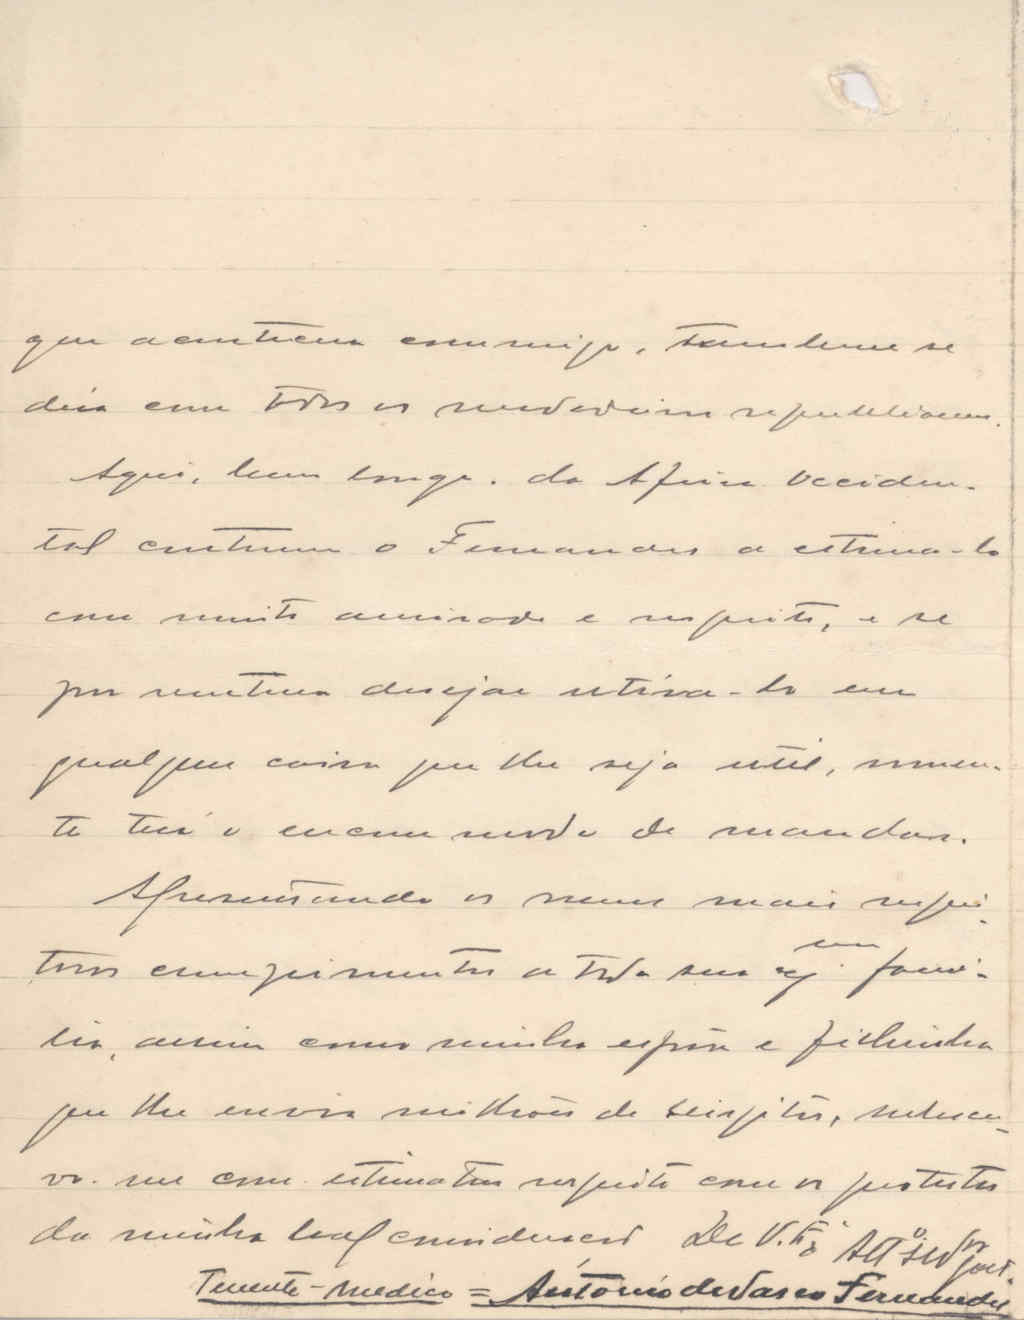 que aconteceu commigo, tambem se
deu com todos os verdadeiros republicanos.
Aqui, bem longe, da Africa Occiden-
tal continua o Fernandes a estima-lo
com muita amisade e respeito, e se
por ventura desejar utiisa-lo em
qualquer coisa que lhe seja util, somen-
te terá o encommodo de mandar.
Apresentando os meus mais respei-
tosos comprimentos a toda sua Exma fami-
lia, assim como minha esposa e filhinha
que lhe envia milhões de beijitos, subscre-
vo-me com estima e respeito com os protestos
da minha leal consideração De V. Exª Attº
Tenente-Medico = António de Vasco Fernandes